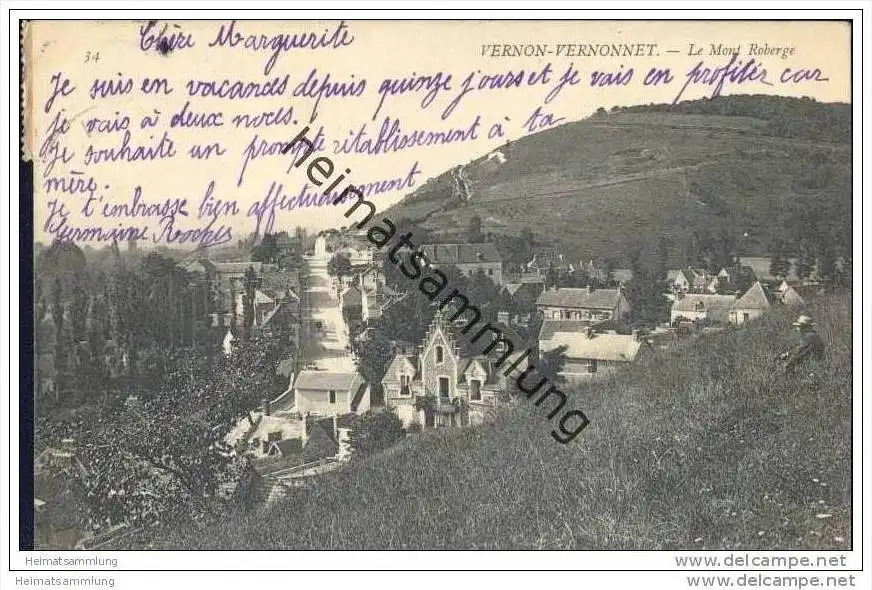 34
VERNON-VERNONNET. — Le Mont Roberge
Chère Marguerite
Je suis en vacances depuis quinze jours et je vais en profiter car
je vais à deux noces.
Je souhaite un prompt rétablissement à ta
mère.
Je t'embrasse bien affectueusement
Germaine Roches
heimatsammlung.de
Heimatsammlung
www.delcampe.net
Heimatsammlung
www.delcampe.net